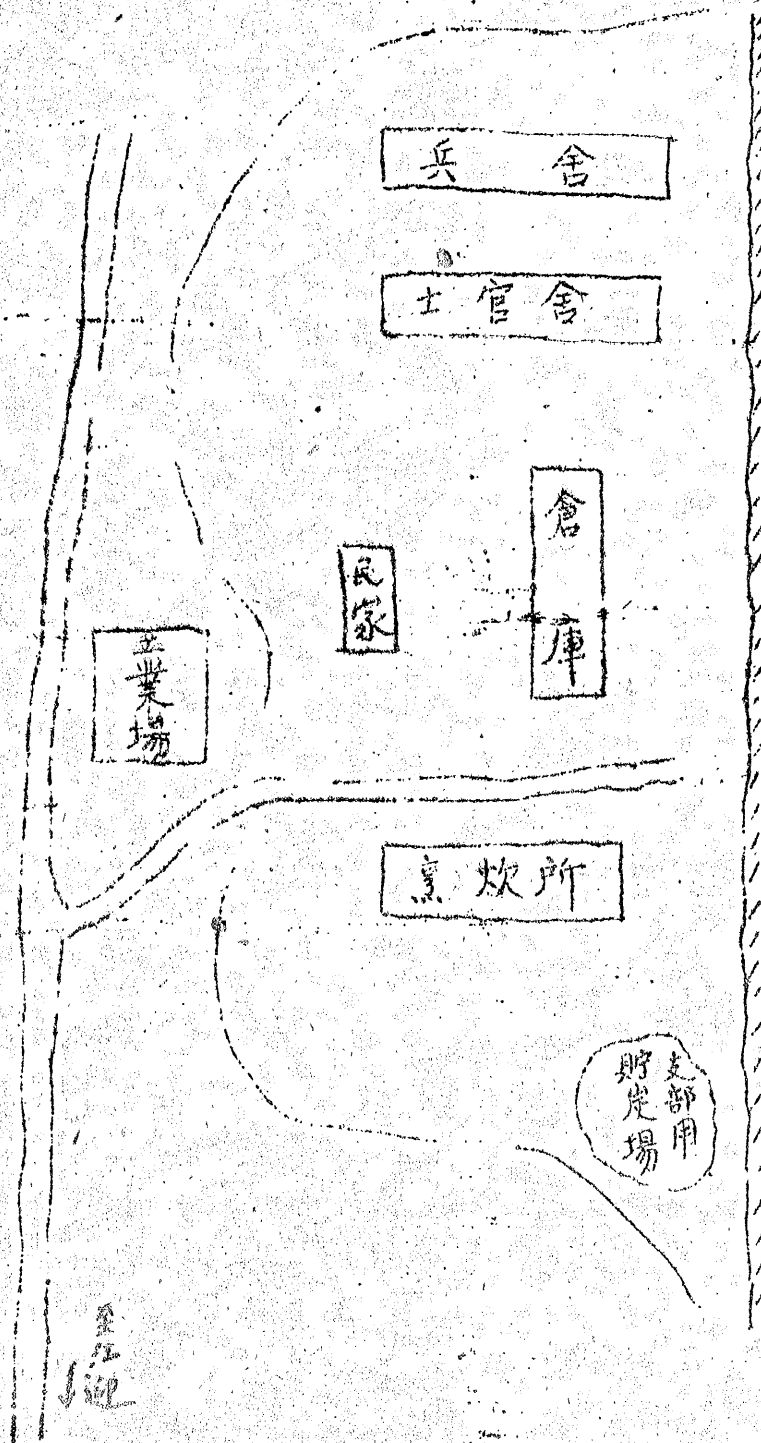 兵舎
士官舎
倉庫
民家
業場
烹炊所
支部用
貯炭場
至江迎